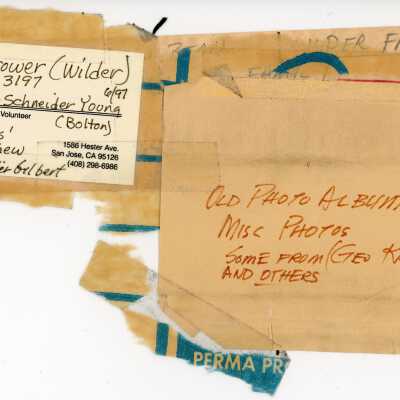 ower (Wilder)
3197 6/97
Schneider Young
Volunteer
(Bolton)
1586 Hester Ave.
San Jose, CA 95126
(408) 298-6986
Gilbert
OLD PHOTO ALBUM
MISC PHOTOS
SOME FROM (GEO K
AND OTHERS
PERMA PR